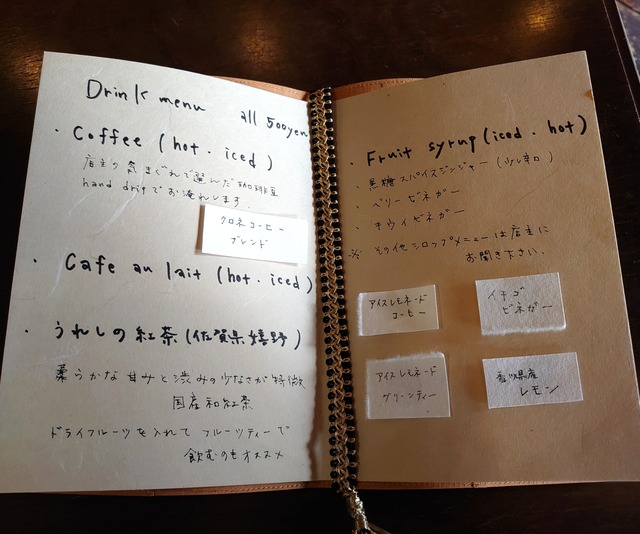 Drink menu
all 500yen
・Coffee (hot・iced)
店主の気まぐれで選んだ珈琲豆
hand dripでお淹れします.
クロネコーヒー
ブレンド
・Cafe au lait (hot・iced)
・うれしの紅茶(佐賀県嬉野)
柔らかな甘みと渋みの少なさが特徴
国産和紅茶
ドライフルーツを入れてフルーツティーで
飲むのもオススメ
・Fruit syrup(iced・hot)
・黒糖スパイスジンジャー(少し辛口)
・ベリービネガー
・キウイビネガー
※その他シロップメニューは店主に
お聞き下さい.
アイスレモネード
コーヒー
イチゴ
ビネガー
アイスレモネード
グリーンティー
香川県産
レモン